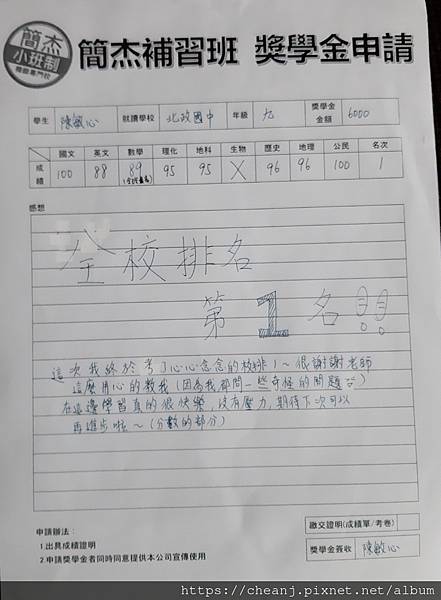 簡杰
小班制
簡杰補習班 獎學金申請
學生 陳敏心 就讀學校 北政國中 年級 九 獎學金金額 6000
國文 英文 數學 理化 地科 生物 歷史 地理 公民 名次
成績 100 88 89 95 95 X 96 96 100 1
感想
全校排名
第1名!!
這次我終於考了心心念念的校排1~很謝謝老師
這麼用心的教我(因為我都問一些奇怪的問題
在這邊學習真的很快樂,沒有壓力,期待下次可以
再進步啦~(分數的部分)
申請辦法:
1.出具成績證明
2.申請獎學金者同時同意提供本公司宣傳使用
繳交證明(成績單/考卷)
獎學金簽收 陳敏心
https://cheanj.pixnet.net/album